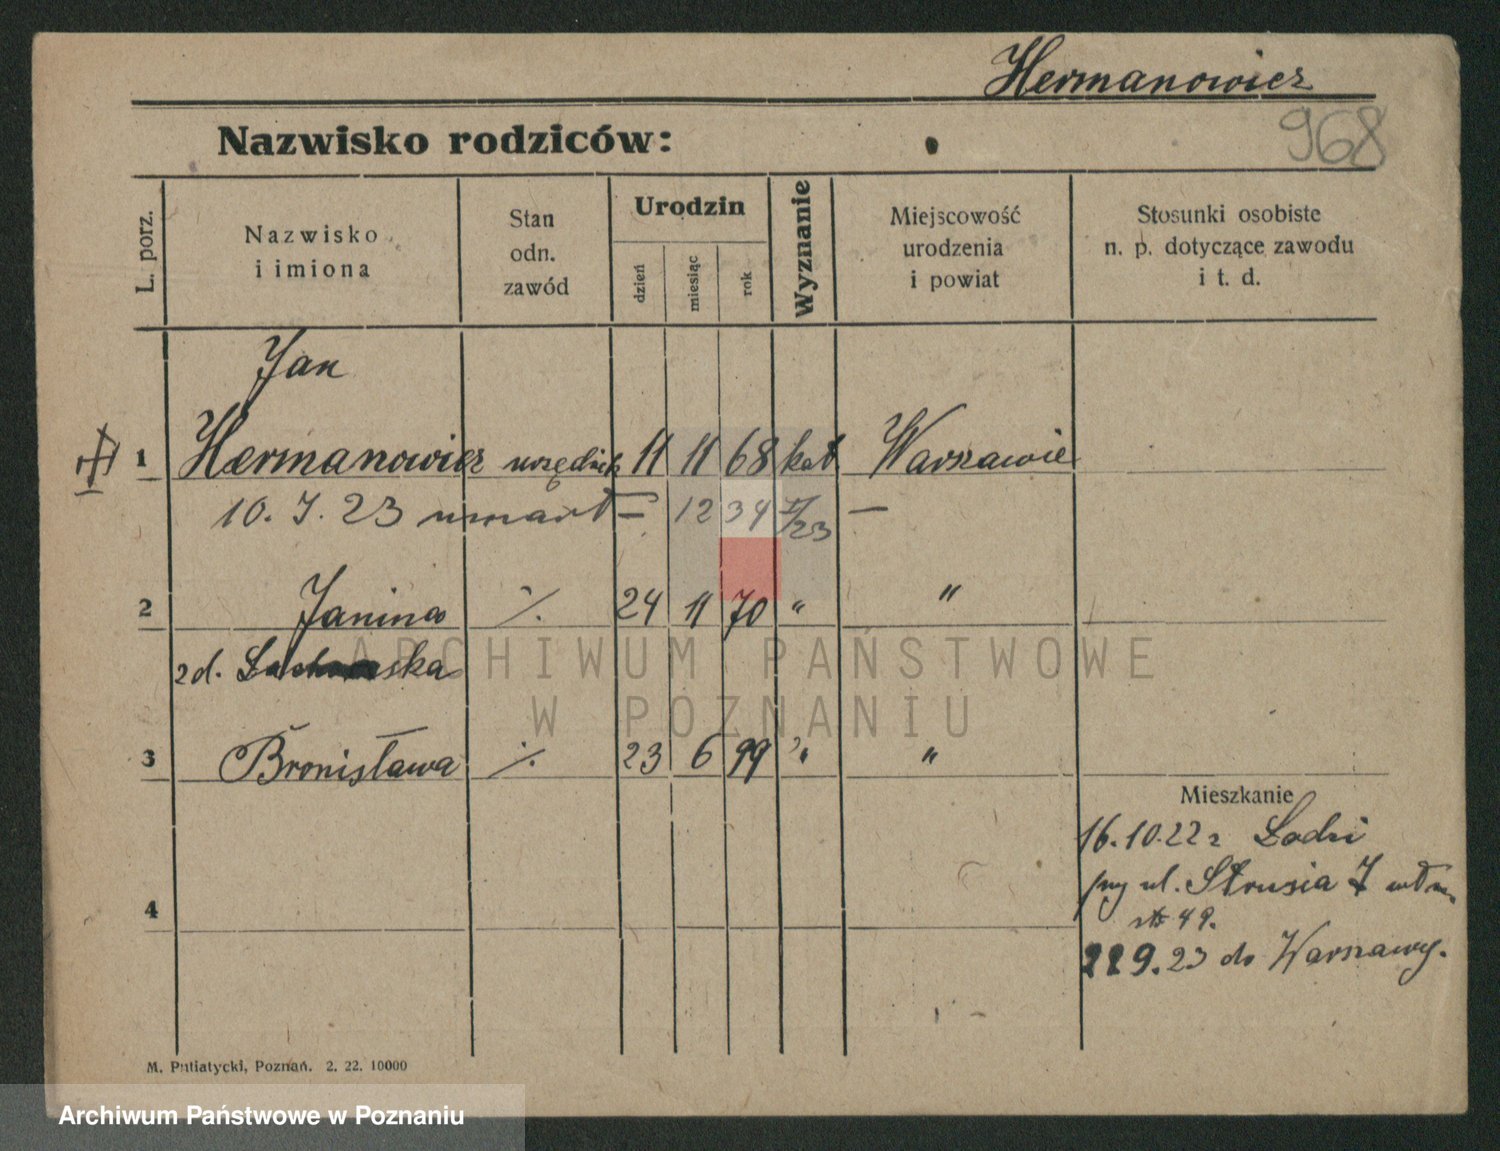 Hermanowicz
968
Nazwisko rodziców:
L. porz.
Nazwisko
i imiona
Stan
odn.
zawód
Urodzin
dzień
miesiąc
rok
Wyznanie
Miejscowość
urodzenia
i powiat
Stosunki osobiste
n. p. dotyczące zawodu
i t. d.
Jan
1 Hermanowicz urzędnik 11 11 68 kat Warszawie
10. 7. 23 umarł = 12 34 I/23 —
2 Janina ./. 24 11 70 " "
zd. ska
ARCHIWUM PAŃSTWOWE
W POZNANIU
3 Bronisława ./. 23 6 99 " "
Mieszkanie
16.10.22 z Łodzi
przy ul. Strusia 7
49.
4
9.23 do Warszawy.
M. Putiatycki, Poznań. 2. 22. 10000
Archiwum Państwowe w Poznaniu